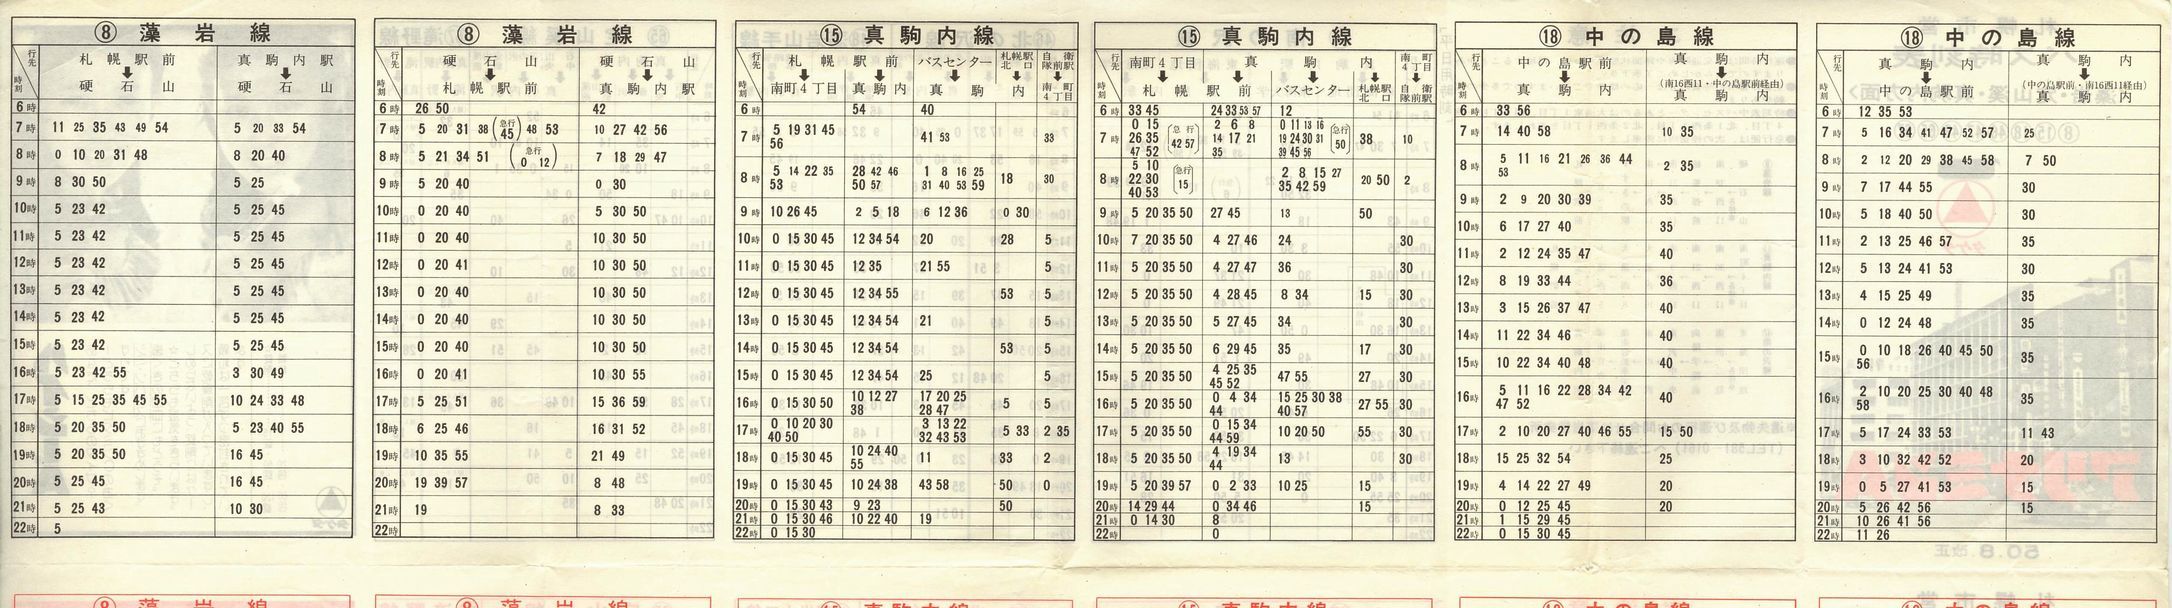 ⑧ 藻岩線
行先
時刻
札幌駅前 → 硬石山
真駒内駅 → 硬石山
6時
7時 11 25 35 43 49 54 5 20 33 54
8時 0 10 20 31 48 8 20 40
9時 8 30 50 5 25
10時 5 23 42 5 25 45
11時 5 23 42 5 25 45
12時 5 23 42 5 25 45
13時 5 23 42 5 25 45
14時 5 23 42 5 25 45
15時 5 23 42 5 25 45
16時 5 23 42 55 3 30 49
17時 5 15 25 35 45 55 10 24 33 48
18時 5 20 35 50 5 23 40 55
19時 5 20 35 50 16 45
20時 5 25 45 16 45
21時 5 25 43 10 30
22時 5
⑧ 藻岩線
行先
時刻
硬石山 → 札幌駅前
硬石山 → 真駒内駅
6時 26 50 42
7時 5 20 31 38 (急行 45) 48 53 10 27 42 56
8時 5 21 34 51 (急行 0 12) 7 18 29 47
9時 5 20 40 0 30
10時 0 20 40 5 30 50
11時 0 20 40 10 30 50
12時 0 20 41 10 30 50
13時 0 20 40 10 30 50
14時 0 20 40 10 30 50
15時 0 20 40 10 30 50
16時 0 20 41 10 30 55
17時 5 25 51 15 36 59
18時 6 25 46 16 31 52
19時 10 35 55 21 49
20時 19 39 57 8 48
21時 19 8 33
22時
⑮ 真駒内線
行先
時刻
札幌駅前
バスセンター
札幌駅北口
自衛隊駅前
南町4丁目
真駒内
南町4丁目
6時 54 40
7時 5 19 31 45 41 53 33
56
8時 5 14 22 35 28 42 46 1 8 16 25 18 30
53 50 57 31 40 53 59
9時 10 26 45 2 5 18 6 12 36 0 30
10時 0 15 30 45 12 34 54 20 28 5
11時 0 15 30 45 12 35 21 55 5
12時 0 15 30 45 12 34 55 53 5
13時 0 15 30 45 12 34 54 21 5
14時 0 15 30 45 12 34 54 53 5
15時 0 15 30 45 12 34 54 25 5
16時 0 15 30 50 10 12 27 17 20 25 5 5
38 28 47
17時 0 10 20 30 3 13 22 5 33 2 35
40 50 32 43 53
18時 0 15 30 45 10 24 40 11 33 2
55
19時 0 15 30 45 10 24 38 43 58 50 0
20時 0 15 30 43 9 23 50
21時 0 15 30 46 10 22 40 19
22時 0 15 30
⑮ 真駒内線
行先
時刻
南町4丁目
真駒内
南町4丁目
札幌駅前
バスセンター
札幌駅北口
自衛隊駅前
6時 33 45 24 33 53 57 12
7時 0 15 (急行 42 57) 2 6 8 0 11 13 16 (急行 50) 38 10
26 35 14 17 21 19 24 30 31
47 52 35 39 45 56
8時 5 10 (急行 15) 2 8 15 27 20 50 2
22 30 35 42 59
40 53
9時 5 20 35 50 27 45 13 50
10時 7 20 35 50 4 27 46 24 30
11時 5 20 35 50 4 27 47 36 30
12時 5 20 35 50 4 28 45 8 34 15 30
13時 5 20 35 50 5 27 45 34 30
14時 5 20 35 50 6 29 45 35 17 30
15時 5 20 35 50 4 25 35 47 55 27 30
45 52
16時 5 20 35 50 0 4 34 15 25 30 38 27 55 30
44 40 57
17時 5 20 35 50 0 15 34 10 20 50 55 30
44 59
18時 5 20 35 50 4 19 34 13 30
44
19時 5 20 39 57 0 2 33 10 25 15
20時 14 29 44 0 34 46 15
21時 0 14 30 8
22時 0
⑱ 中の島線
行先
時刻
中の島駅前 → 真駒内
真駒内 → (南16西11・中の島駅前経由) 真駒内
6時 33 56
7時 14 40 58 10 35
8時 5 11 16 21 26 36 44 2 35
53
9時 2 9 20 30 39 35
10時 6 17 27 40 35
11時 2 12 24 35 47 40
12時 8 19 33 44 36
13時 3 15 26 37 47 40
14時 11 22 34 46 40
15時 10 22 34 40 48 40
16時 5 11 16 22 28 34 42 40
47 52
17時 2 10 20 27 40 46 55 15 50
18時 15 25 32 54 25
19時 4 14 22 27 49 20
20時 0 12 25 45 20
21時 1 15 29 45
22時 0 15 30 45
⑱ 中の島線
行先
時刻
真駒内 → 中の島駅前
真駒内 → (中の島駅前・南16西11経由) 真駒内
6時 12 35 53
7時 5 16 34 41 47 52 57 25
8時 2 12 20 29 38 45 58 7 50
9時 7 17 44 55 30
10時 5 18 40 50 30
11時 2 13 25 46 57 35
12時 5 13 24 41 53 30
13時 4 15 25 49 35
14時 0 12 24 48 35
15時 0 10 18 26 40 45 50 35
56
16時 2 10 20 25 30 40 48 35
58
17時 5 17 24 33 53 11 43
18時 3 10 32 42 52 20
19時 0 5 27 41 53 15
20時 5 26 42 56 15
21時 10 26 41 56
22時 11 26
⑧ 藻岩線
⑧ 藻岩線
⑮ 真駒内線
⑮ 真駒内線
⑱ 中の島線
⑱ 中の島線